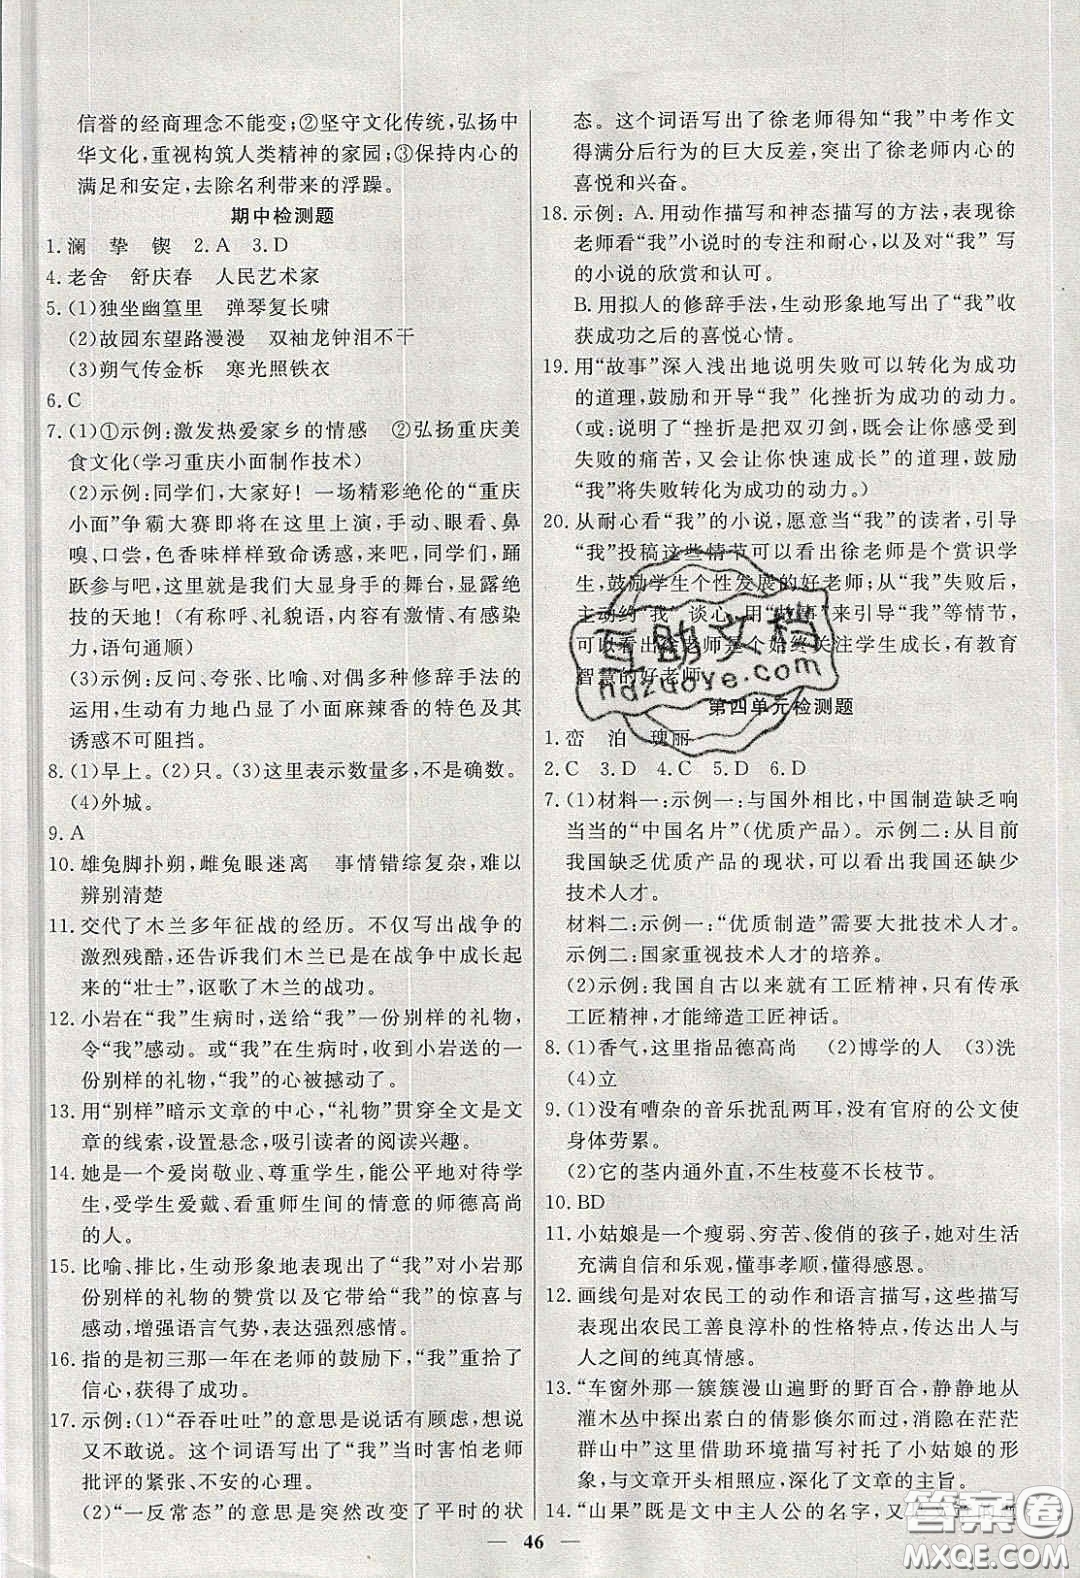 信誉的经商理念不能变;②坚守文化传统,弘扬中
华文化,重视构筑人类精神的家园;③保持内心的
满足和安定,去除名利带来的浮躁。
期中检测题
1. 澜 挚 锲 2. A 3. D
4. 老舍 舒庆春 人民艺术家
5. (1)独坐幽篁里 弹琴复长啸
(2)故园东望路漫漫 双袖龙钟泪不干
(3)朔气传金柝 寒光照铁衣
6. C
7. (1)①示例:激发热爱家乡的情感 ②弘扬重庆美
食文化(学习重庆小面制作技术)
(2)示例:同学们,大家好！一场精彩绝伦的“重庆
小面”争霸大赛即将在这里上演,手动、眼看、鼻
嗅、口尝,色香味样样致命诱惑,来吧,同学们,踊
跃参与吧,这里是我们大显身手的舞台,显露绝
技的天地！(有称呼、礼貌语,内容有激情、有感染
力,语句通顺)
(3)示例:反问、夸张、比喻、对偶多种修辞手法的
运用,生动有力地凸显了小面麻辣香的特色及其
诱惑不可阻挡。
8. (1)早上。(2)只。(3)这里表示数量多,不是确数。
(4)外城。
9. A
10. 雄兔脚扑朔,雌兔眼迷离 事情错综复杂,难以
辨别清楚
11. 交代了木兰多年征战的经历。不仅写出战争的
激烈残酷,还告诉我们木兰是在战争中成长起
来的“壮士”,讴歌了木兰的战功。
12. 小岩在“我”生病时,送给“我”一份别样的礼物,
令“我”感动。或“我”在生病时,收到小岩送的一
份别样的礼物,“我”的心被撼动了。
13. 用“别样”暗示文章的中心,“礼物”贯穿全文是文
章的线索,设置悬念,吸引读者的阅读兴趣。
14. 她是一个爱岗敬业、尊重学生,能公平地对待学
生,受学生爱戴、看重师生间的情意的师德高尚
的人。
15. 比喻、排比,生动形象地表现出了“我”对小岩那
份别样的礼物的赞赏以及它带给“我”的惊喜与
感动,增强语言气势,表达强烈感情。
16. 指的是初三那一年在老师的鼓励下,“我”重拾了
信心,获得了成功。
17. 示例:(1)“吞吞吐吐”的意思是说话有顾虑,想说
又不敢说。这个词语写出了“我”当时害怕老师
批评的紧张、不安的心理。
(2)“一反常态”的意思是突然改变了平时的状
态。这个词语写出了徐老师得知“我”中考作文
得满分后行为的巨大反差,突出了徐老师内心的
喜悦和兴奋。
18. 示例:A. 用动作描写和神态描写的方法,表现徐
老师看“我”小说时的专注和耐心,以及对“我”写
的小说的欣赏和认可。
B. 用拟人的修辞手法,生动形象地写出了“我”收
获成功之后的喜悦心情。
19. 用“故事”深入浅出地说明失败可以转化为成功
的道理,鼓励和开导“我”化挫折为成功的动力。
(或:说明了“挫折是把双刃剑,既会让你感受到
失败的痛苦,又会让你快速成长”的道理,鼓励
“我”将失败转化为成功的动力。)
20. 从耐心看“我”的小说,愿意当“我”的读者,引导
“我”投稿这些情节可以看出徐老师是个赏识学
生,鼓励学生个性发展的好老师;从“我”失败后,
主动约“我”谈心,用“故事”来引导“我”等情节,
可以看出徐老师是个始终关注学生成长,有教育
智慧的好老师。
互助文档
hdzuoye.com
第四单元检测题
1. 峦 泊 瑰丽
2. C 3. D 4. C 5. D 6. D
7. (1)材料一:示例一:与国外相比,中国制造缺乏响
当当的“中国名片”(优质产品)。示例二:从目前
我国缺乏优质产品的现状,可以看出我国还缺少
技术人才。
材料二:示例一:“优质制造”需要大批技术人才。
示例二:国家重视技术人才的培养。
(2)示例:我国自古以来就有工匠精神,只有传承
工匠精神,才能缔造工匠神话。
8. (1)香气,这里指品德高尚 (2)博学的人 (3)洗
(4)立
9. (1)没有嘈杂的音乐扰乱两耳,没有官府的公文使
身体劳累。
(2)它的茎内通外直,不生枝蔓不长枝节。
10. BD
11. 小姑娘是一个瘦弱、穷苦、俊俏的孩子,她对生活
充满自信和乐观,懂事孝顺,懂得感恩。
12. 画线句是对农民工的动作和语言描写,这些描写
表现出农民工善良淳朴的性格特点,传达出人与
人之间的纯真情感。
13. “车窗外那一簇簇漫山遍野的野百合,静静地从
灌木丛中探出素白的倩影倏尔而过,消隐在茫茫
群山中”这里借助环境描写衬托了小姑娘的形
象,与文章开头相照应,深化了文章的主旨。
14. “山果”既是文中主人公的名字,又
46
答案圈
MXQE.COM